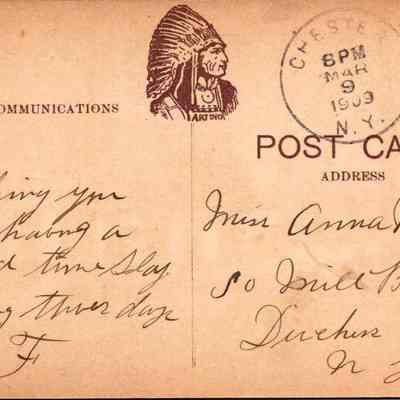 COMMUNICATIONS
ART INK
CHESTE
8PM
MAR
9
1909
N.Y.
POST CA
ADDRESS
you
a
time Slay
days
F
Miss Anna
So Mill
Duchess
N